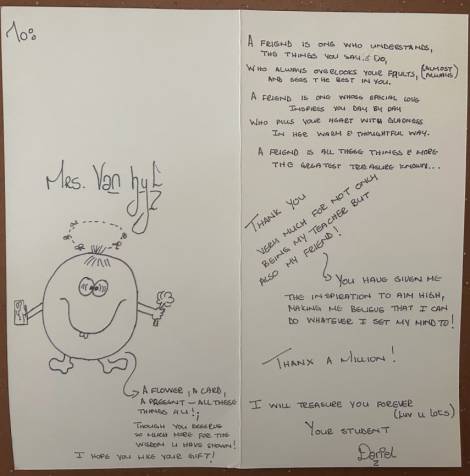 To:
Mrs. Van Zyl
A FLOWER, A CARD,
A PRESENT – ALL THESE
THINGS 4 U!;
THOUGH YOU DESERVE
SO MUCH MORE FOR THE
WISDOM U HAVE SHOWN!
I HOPE YOU LIKE YOUR GIFT!
A FRIEND IS ONE WHO UNDERSTANDS,
THE THINGS YOU SAY & DO,
WHO ALWAYS OVERLOOKS YOUR FAULTS, (ALMOST ALWAYS)
AND SEES THE BEST IN YOU.
A FRIEND IS ONE WHOSE SPECIAL LOVE
INSPIRES YOU DAY BY DAY
WHO FILLS YOUR HEART WITH GLADNESS
IN HER WARM & THOUGHTFUL WAY.
A FRIEND IS ALL THESE THINGS & MORE
THE GREATEST TREASURE KNOWN...
THANK YOU
VERY MUCH FOR NOT ONLY
BEING MY TEACHER BUT
ALSO MY FRIEND!
YOU HAVE GIVEN ME
THE INSPIRATION TO AIM HIGH,
MAKING ME BELIEVE THAT I CAN
DO WHATEVER I SET MY MIND TO!
THANX A MILLION!
I WILL TREASURE YOU FOREVER
(LUV U LOTS)
YOUR STUDENT